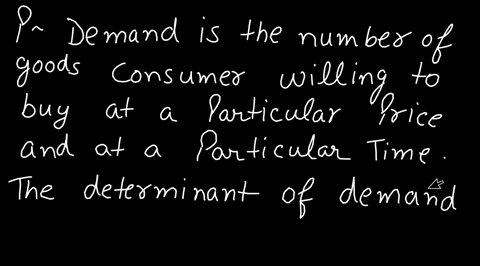 P~ Demand is the number of
goods Consumer willing to
buy at a Particular Price
and at a Particular Time.
The determinant of demand